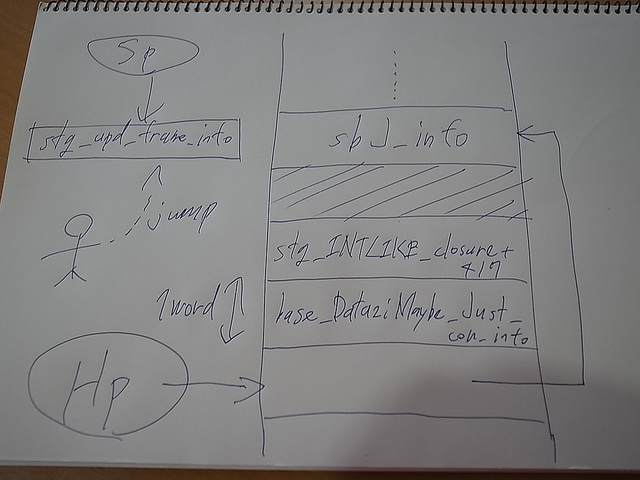 Sp
stg_upd_frame_info
jump
1word
Hp
sbJ_info
stg_INTLIKE_closure+
417
base_DataziMaybe_Just_
con_info